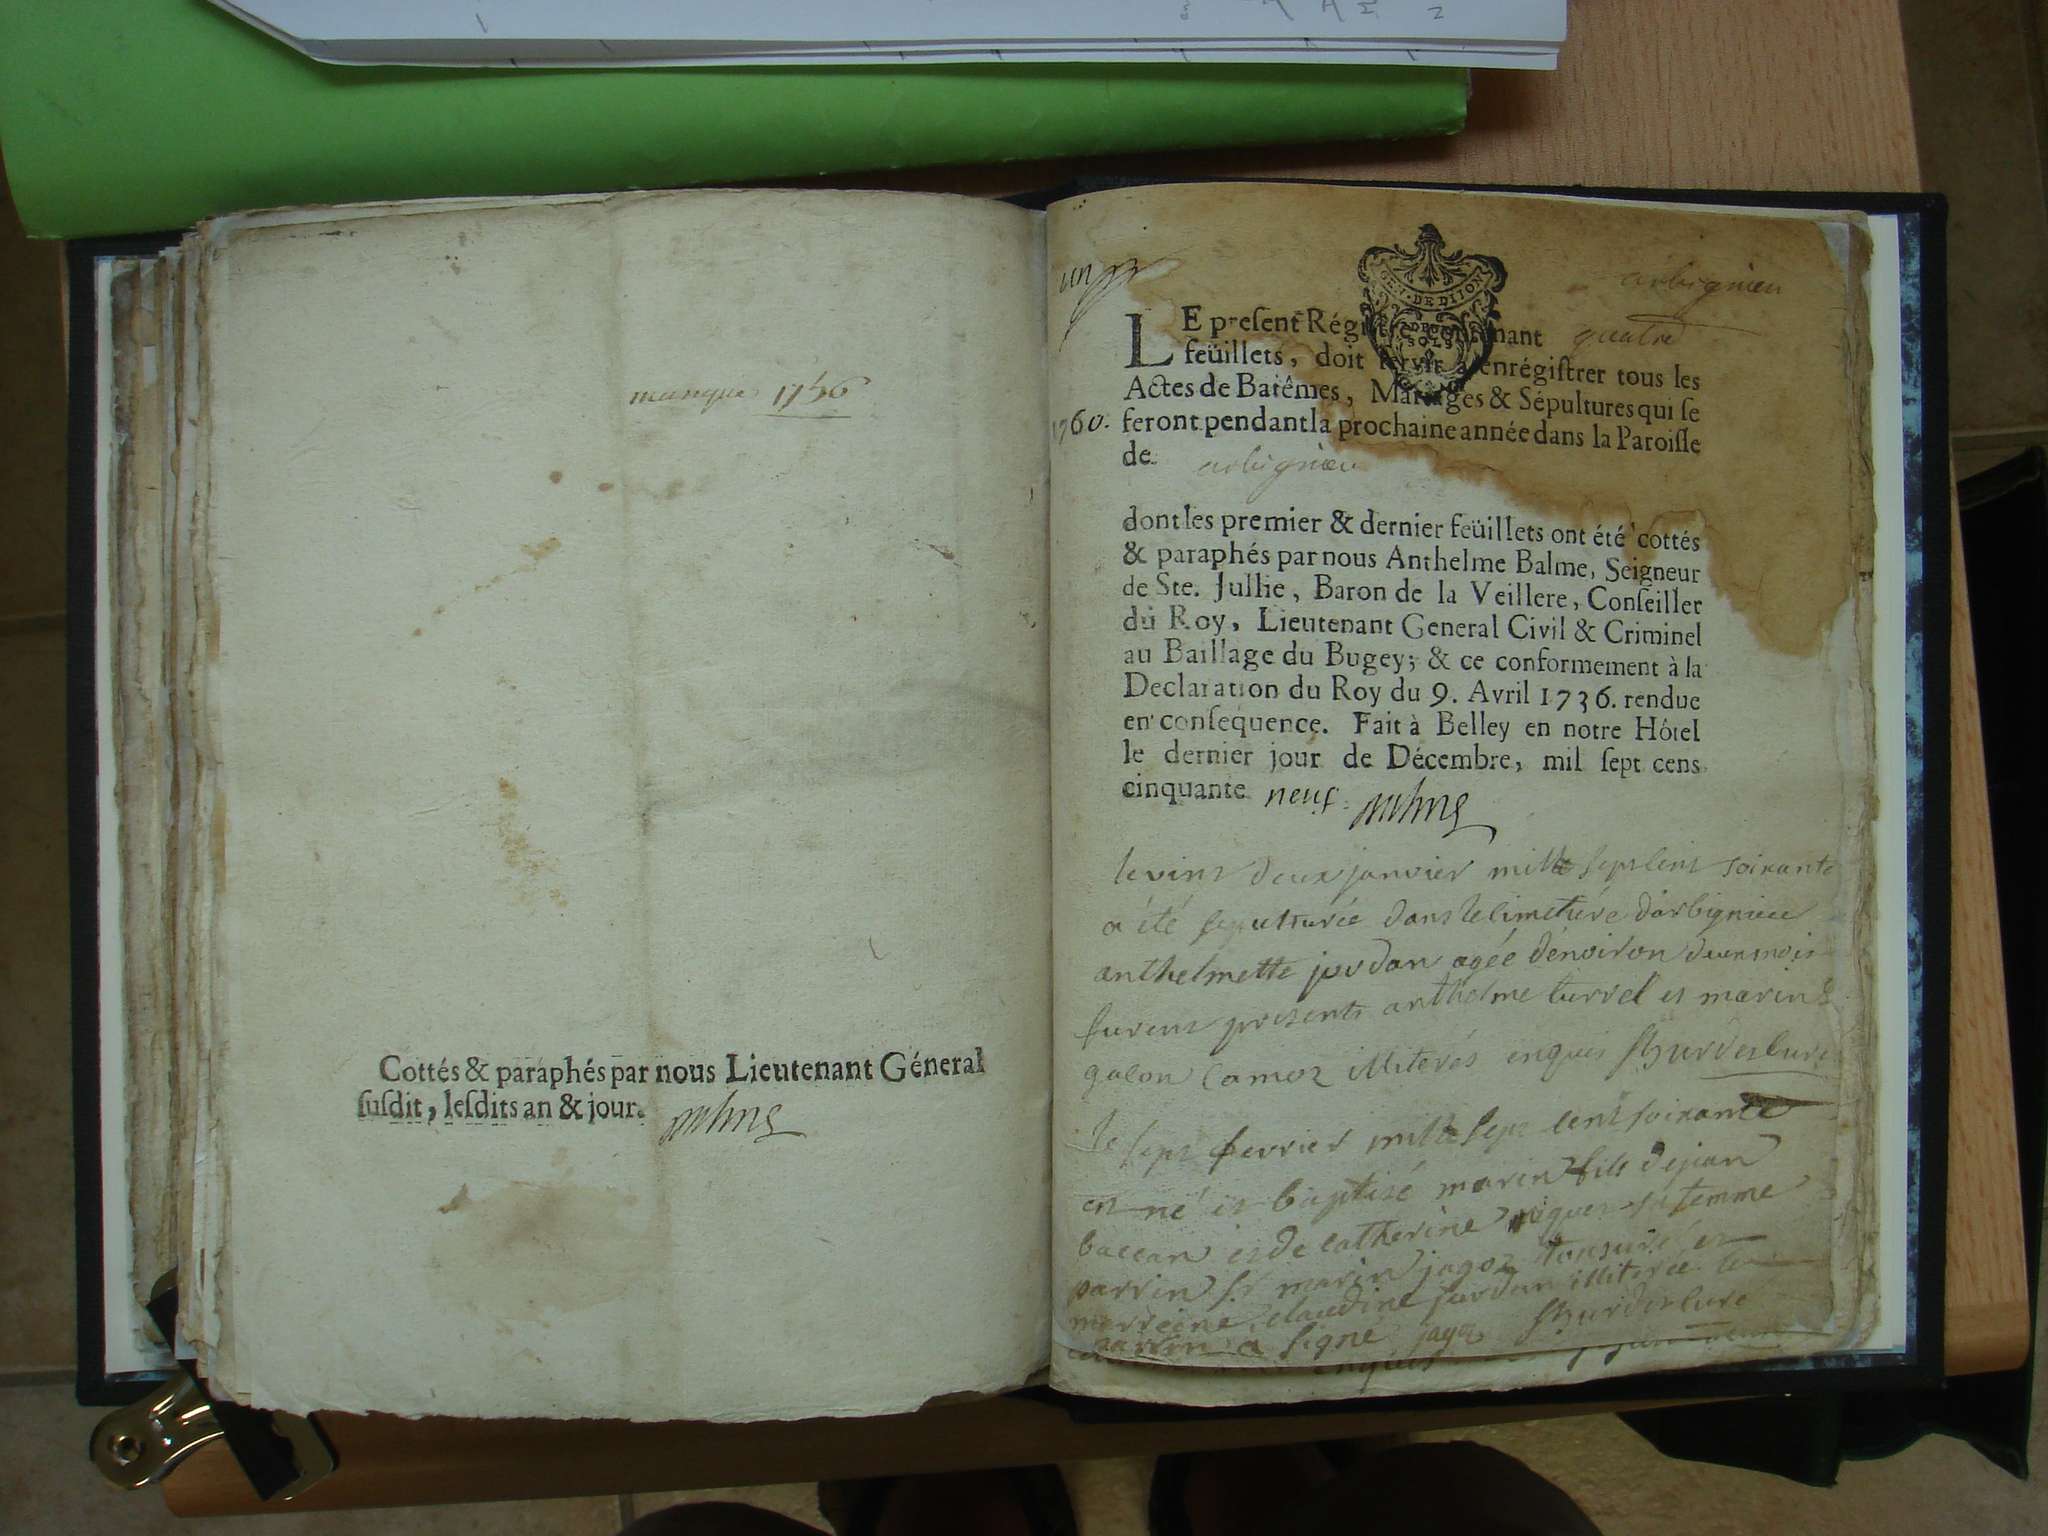 manque 1756
Cottés & paraphés par nous Lieutenant Géneral
susdit, lesdits an & jour.
un
GEN. DE DIJON
SOLS
arbignieu
LE present Régistre contenant quatre
feüillets, doit servir à enrégistrer tous les
Actes de Batêmes, Mariages & Sépultures qui se
1760.
feront pendant la prochaine année dans la Paroisse
de arbignieu
dont les premier & dernier feüillets ont été cottés
& paraphés par nous Anthelme Balme, Seigneur
de Ste. Jullie, Baron de la Veillere, Conseiller
du Roy, Lieutenant General Civil & Criminel
au Baillage du Bugey; & ce conformement à la
Declaration du Roy du 9. Avril 1736. rendue
en consequence. Fait à Belley en notre Hôtel
le dernier jour de Décembre, mil sept cens
cinquante neuf
le vint deux janvier mille sept cent soixante
a été sepulturée dans le cimetiére darbignieu
anthelmette jordan agée d'environ deux mois
furent presents anthelme turrel et marin
galon illiterés enquis
le sept fevrier mille sept cent soixante
est né et baptisé marin fils de jean
et de catherine sa femme
parrin sr marin jagoz tonsuré et
marreine claudine jordan illiterée le
parrin a signé jagoz